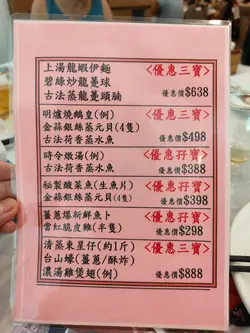 上湯龍蝦伊麵 <優惠三寶>
碧綠炒龍躉球
古法蒸龍躉頭腩 優惠價$638
明爐燒鵝皇(例) <優惠三寶>
金蒜銀絲蒸元貝(4隻)
古法荷香蒸水魚 優惠價$498
時令燉湯(例) <優惠孖寶>
古法荷香蒸水魚 優惠價$388
秘製酸菜魚(生魚片) <優惠孖寶>
金蒜銀絲蒸元貝(4隻) 優惠價$398
薑蔥爆新鮮魚卜 <優惠孖寶>
當紅脆皮雞(半隻) 優惠價$298
清蒸東星仔(約1斤) <優惠三寶>
台山蠔(薑蔥/酥炸)
濃湯雞煲翅(例) 優惠價$888